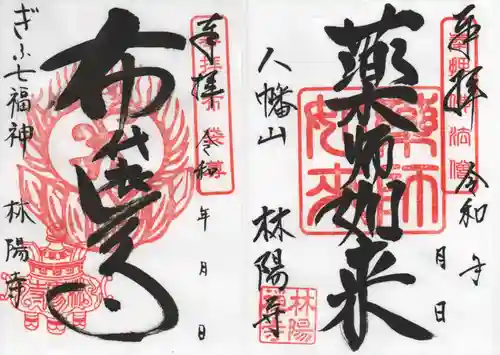 奉拝
薬師如来
令和 年 月 日
八幡山
林陽寺
薬師如来
林陽寺
奉拝
布袋尊
令和 年 月 日
ぎふ七福神
林陽寺